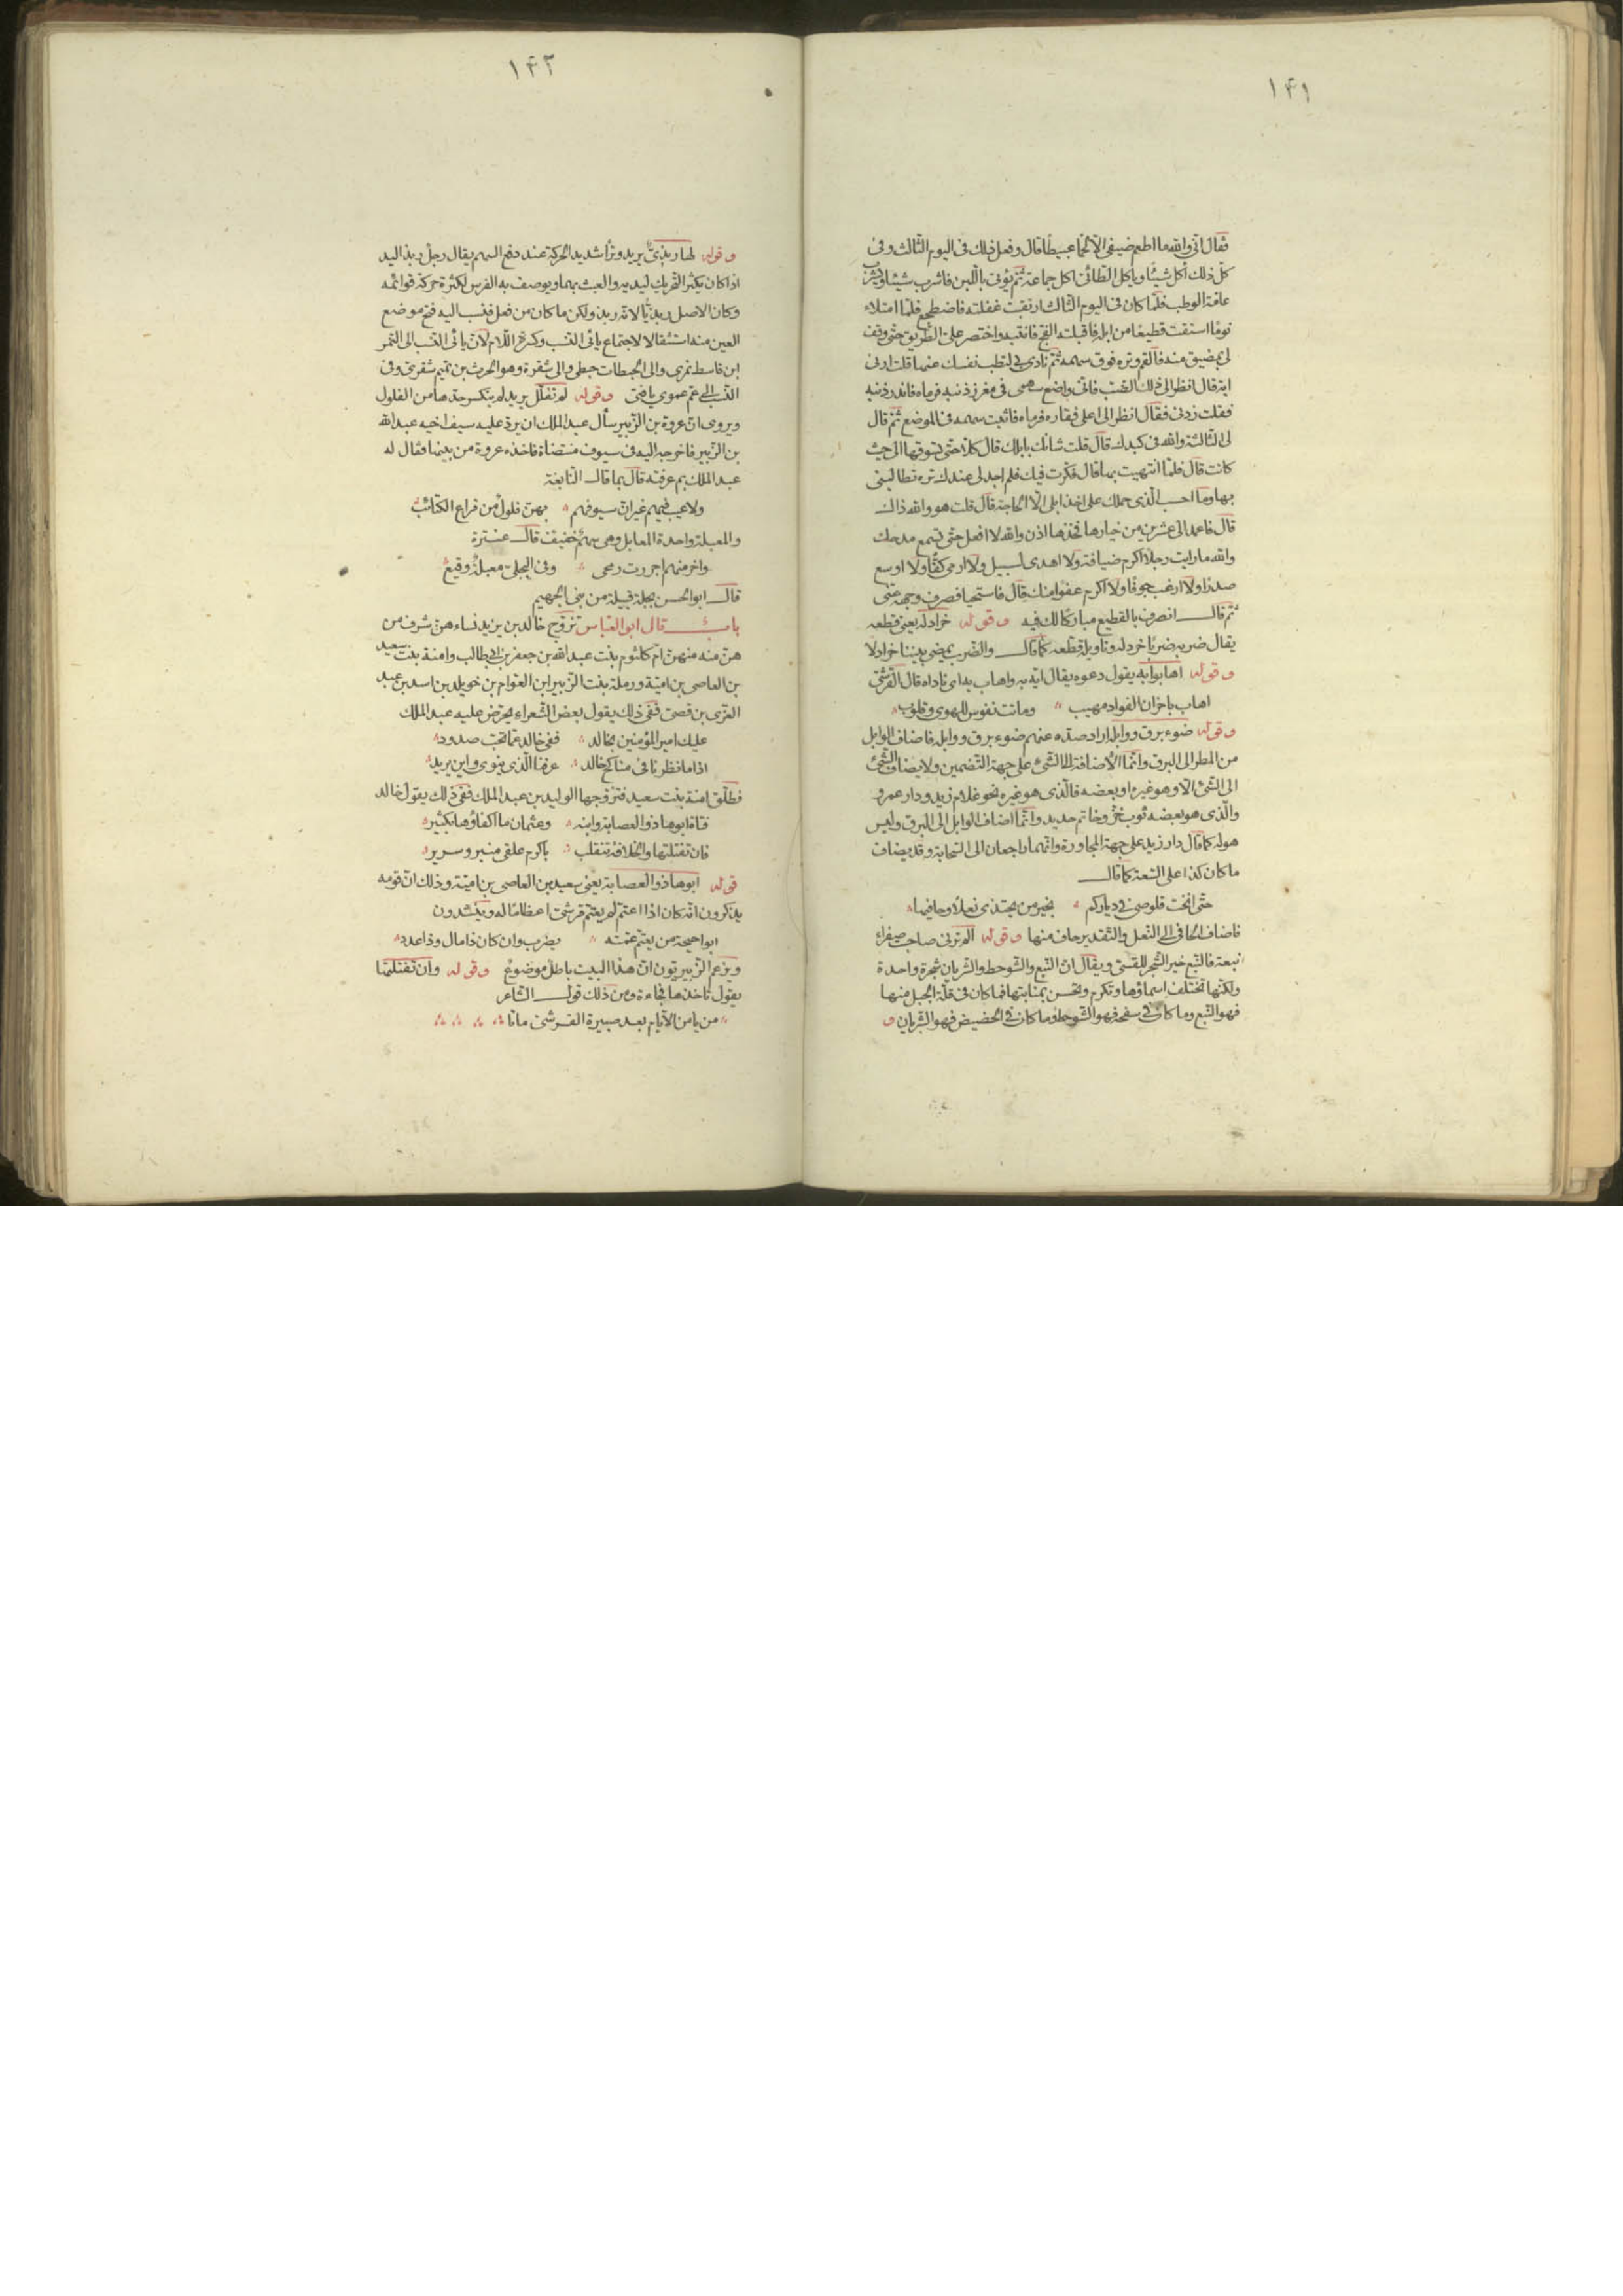 ١٤١
فقال انّى والله ما اطعم ضيفى الّا لحمًا عبيطًا قال وفعل ذلك فى اليوم الثّالث وفى
كلّ ذلك آكل شيئًا ويأكل الطّائىّ اكل جماعة ثمّ نؤتى باللّبن فاشرب شيئًا ويشرب
عامّة الوطب فلمّا كان فى اليوم الثّالث ارتقبت غفلته فاضطجع فلمّا امتلاء
نومًا استقت قطيعًا من ابله فاقبلته الفجّ فانتبه واختصر علىّ الطّريق حتّى وقف
لى بمضيق منه فالقم وتره فوق سهمه ثمّ نادى بى لتطب نفسك عنها قلت ارنى
اية قال انظر الى ذلك الضّب فانّى واضع سهمى فى مغرز ذنبه فرماه فاندر ذنبه
فقلت زدنى فقال انظر الى اعلى فقاره فرماه فاثبت سهمه فى الموضع ثمّ قال
لى الثّالثة والله فى كبدك قال قلت شانك بابلك قال كلّا حتّى تسوقها الى حيث
كانت قال فلمّا انتهيت بها قال فكّرت فيك فلم اجد لى عندك تره تطالبنى
بها وما احسب الّذى حملك على اخذ ابلى الّا الحاجة قال قلت هو والله ذاك
قال فاعمد الى عشرين من خيارها فخذها اذن والله لا افعل حتّى تسمع مدحك
والله ما رايت رجلًا اكرم ضيافة ولا اهدى لسبيل ولا ارمى كفًّا ولا اوسع
صدرًا ولا ارغب جوفًا ولا اكرم عفوًا منك قال فاستحيا فصرف وجهه عنّى
ثمّ قال انصرف بالقطيع مباركًا لك فيه وقوله خرادله يعنى قطعه
يقال ضربه ضربًا خردله وتاويله قطّعه كما قال والضّرب يمضى بيننا خرادلا
وقوله اهابوا به يقول دعوه يقال ايه به واهاب به اى ناداه قال القرشىّ
اهاب باحزان الفواد مهيب وماتت نفوس للهوى وقلوب
وقوله ضوء برق ووابله اراد صدّه عنهم ضوء برق ووابله فاضاف الوابل
من المطر الى البرق وانّما الاضافة الى الشّىء على جهة التّضمين ولا يضاف الشّىء
الى الشّىء الّا وهو غيره او بعضه فالّذى هو غيره نحو غلام زيد ودار عمرو
والّذى هو بعضه ثوب خزّ وخاتم حديد وانّما اضاف الوابل الى البرق وليس
هو له كما قال دار زيد على جهة المجاورة وانّهما راجعان الى السّحابة وقد يضاف
ما كان كذا على السّعة كما قال
حتّى انخت قلوصى فى دياركم بخير من يحتذى نعلًا وحافيها
فاضاف الحافى الى النّعل والتّقدير حاف منها وقوله الم ترنى صاحبت صفراء
نبعة فالنّبع خير الشّجر للقسىّ ويقال انّ النّبع والشّوحط والشّريان شجرة واحدة
ولكنّها تختلف اسماؤها وتكرم وتحسن بمنابتها فما كان فى قلّة الجبل منها
فهو النّبع وما كان فى سفحه فهو الشّوحط وما كان فى الحضيض فهو الشّريان و
١٤٢
وقوله لها ربذىّ يريد وترًا شديد الحركة عند دفع السهم يقال رجل ربذ اليد
اذا كان يكثر التّحريك ليديه والعبث بهما ويوصف به الفرس لكثرة حركة قوائمه
وكان الاصل ربذيًّا لانّه ربذ ولكن ما كان من فعل فنسب اليه فتح موضع
العين منه استثقالا لاجتماع يائى النّسب وكسرة اللّام لانّ يائى النّسب الى النّمر
ابن قاسط نمرى والى الحبطات حبطى والى شقرة وهو الحرث بن تميم شقرى وفى
النّسب الى عمّ عموى يا فتى وقوله لم تفلّل يريد لم ينكسر حدّها من الفلول
ويروى انّ عروة بن الزّبير سأل عبد الملك ان يردّ عليه سيف اخيه عبد الله
بن الزّبير فاخرجه اليه فى سيوف منتضاة فاخذه عروة من بينها فقال له
عبد الملك بم عرفته قال بما قال النّابغة
ولا عيب فيهم غير انّ سيوفهم بهنّ فلول من قراع الكتائب
والمعبلة واحدة المعابل وهى سهم خفيف قال عنترة
واخر منهم اجررت رمحى وفى البجلىّ معبلة وقيع
قال ابو الحسن بجلة قبيلة من بنى الجهيم
باب قال ابو العبّاس تزوّج خالد بن يزيد نساء هنّ شرف من
هنّ منه منهنّ امّ كلثوم بنت عبد الله بن جعفر بن ابى طالب وامنة بنت سعيد
بن العاصى بن اميّة ورملة بنت الزّبير ابن العوّام بن خويلد بن اسد بن عبد
العزّى بن قصىّ ففى ذلك يقول بعض الشّعراء يحرّض عليه عبد الملك
عليك امير المؤمنين بخالد ففى خالد عمّا تحبّ صدود
اذا ما نظرنا فى مناكح خالد عرفنا الّذى ينوى واين يريد
فطلّق امنة بنت سعيد فتزوّجها الوليد بن عبد الملك ففى ذلك يقول خالد
فتاة ابوها ذو العصابة وابنه وعثمان ما اكفاؤها بكثير
فان تفتلتها والخلافة تنقلب باكرم علقى منبر وسرير
قوله ابوها ذو العصابة يعنى سعيد بن العاصى بن اميّة وذلك انّ قومه
يذكرون انّه كان اذا اعتمّ لم يعتمّ قرشىّ اعظامًا له وينشدون
ابو احيحة من يعتمّ عمّته يضرب وان كان ذا مال وذا عدد
ويزعم الزّبيريّون انّ هذا البيت باطل موضوع وقوله وان تفتلتها
يقول تاخذها فجاءة ومن ذلك قول الشّاعر
من يامن الايّام بعد صبيرة القرشىّ ماتا